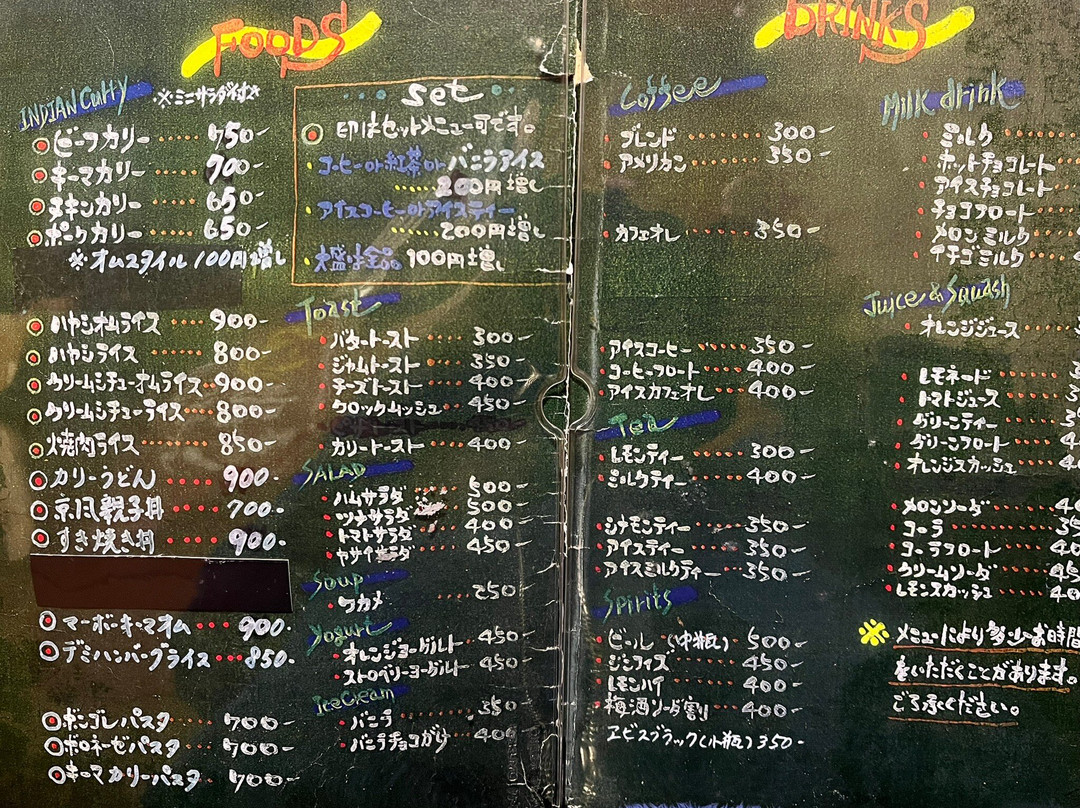 FOODS
INDIAN Curry ※ミニサラダ付き
ビーフカリー ・・・・・ 750-
キーマカリー ・・・・・ 700-
チキンカリー ・・・・ 650-
ポークカリー ・・・・ 650-
※オムスタイル 100円増し
ハヤシオムライス ・・・・・ 900-
ハヤシライス ・・・・・ 800-
クリームシチューオムライス ・・ 900-
クリームシチューライス ・・・ 800-
焼肉ライス ・・・・・ 850-
カリーうどん ・・・・ 900-
京風親子丼 ・・・・ 700-
すき焼き丼 ・・・・ 900-
マーボーキーマオム ・・・ 900-
デミハンバーグライス ・・・ 850-
ボンゴレパスタ ・・・・ 700-
ボロネーゼパスタ ・・・ 700-
キーマカリーパスタ ・・ 700-
Set
◎印はセットメニュー可です。
コーヒーor紅茶orバニラアイス
・・・・・ 200円増し
アイスコーヒーorアイスティー
・・・・・ 200円増し
大盛は全品100円増し
Toast
バタートースト ・・・・ 300-
ジャムトースト ・・・・ 350-
チーズトースト ・・・・ 400-
クロックムッシュ ・・ 450-
カリートースト ・・・・ 400-
SALAD
ハムサラダ 500-
ツナサラダ 500-
トマトサラダ 400-
ヤサイサラダ ・・・ 450-
Soup
ワカメ ・・・・・ 250
Yogurt
オレンジヨーグルト ・・ 450-
ストロベリーヨーグルト ・ 450-
IceCream
バニラ ・・・・・・・ 350
バニラチョコがけ ・・・ 400
DRINKS
Coffee
ブレンド ・・・・・・ 300-
アメリカン ・・・・・ 350-
カフェオレ ・・・・・ 350-
アイスコーヒー ・・・・・ 350-
コーヒーフロート ・・・・ 400-
アイスカフェオレ ・・・ 400-
Tea
レモンティー ・・・・・ 300-
ミルクティー ・・・・・ 400-
シナモンティー ・・・・ 350-
アイスティー ・・・・・ 350-
アイスミルクティー ・・・ 350-
Spirits
ビール (中瓶) ・・ 500-
ジンフィズ ・・・・・ 450-
レモンハイ ・・・・・ 400-
梅酒ソーダ割り ・・・ 400-
エビスブラック(小瓶) 350-
Milk drink
ミルク ・・・・・・
ホットチョコレート ・・・
アイスチョコレート ・・・
チョコフロート ・・・・
メロンミルク ・・・・
イチゴミルク ・・・・
Juice & Squash
オレンジジュース ・・・
レモネード ・・・・
トマトジュース ・・・
グリーンティー ・・・
グリーンフロート ・・・
オレンジスカッシュ ・・・
メロンソーダ ・・・・
コーラ ・・・・・・
コーラフロート ・・・・
クリームソーダ ・・・・
レモンスカッシュ ・・・
※メニューにより多少お時間
をいただくことがあります。
ご了承ください。